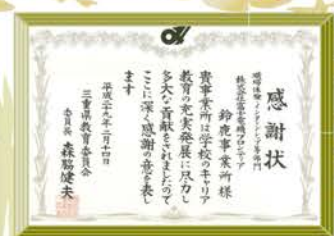 感謝状
職場体験・インターンシップ等部門
株式会社富士電機フロンティア
鈴鹿事業所様
貴事業所は学校のキャリア
教育の充実発展に尽力し
多大な貢献をされましたので
ここに深く感謝の意を表し
ます
平成二十九年二月十四日
三重県教育委員会
委員長 森脇健夫